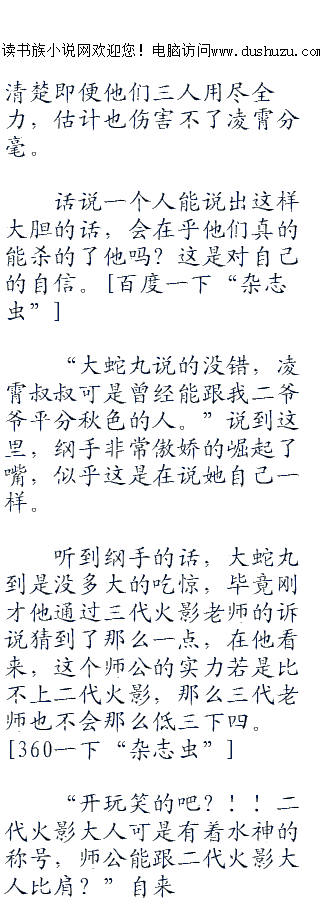 读书族小说网欢迎您！电脑访问www.dushuzu.com
清楚即便他们三人用尽全
力，估计也伤害不了凌霄分
毫。
话说一个人能说出这样
大胆的话，会在乎他们真的
能杀的了他吗？这是对自己
的自信。[百度一下“杂志
虫”]
“大蛇丸说的没错，凌
霄叔叔可是曾经能跟我二爷
爷平分秋色的人。”说到这
里，纲手非常傲娇的崛起了
嘴，似乎这是在说她自己一
样。
听到纲手的话，大蛇丸
到是没多大的吃惊，毕竟刚
才他通过三代火影老师的诉
说猜到了那么一点，在他看
来，这个师公的实力若是比
不上二代火影，那么三代老
师也不会那么低三下四。
[360一下“杂志虫”]
“开玩笑的吧？！！二
代火影大人可是有着水神的
称号，师公能跟二代火影大
人比肩？”自来